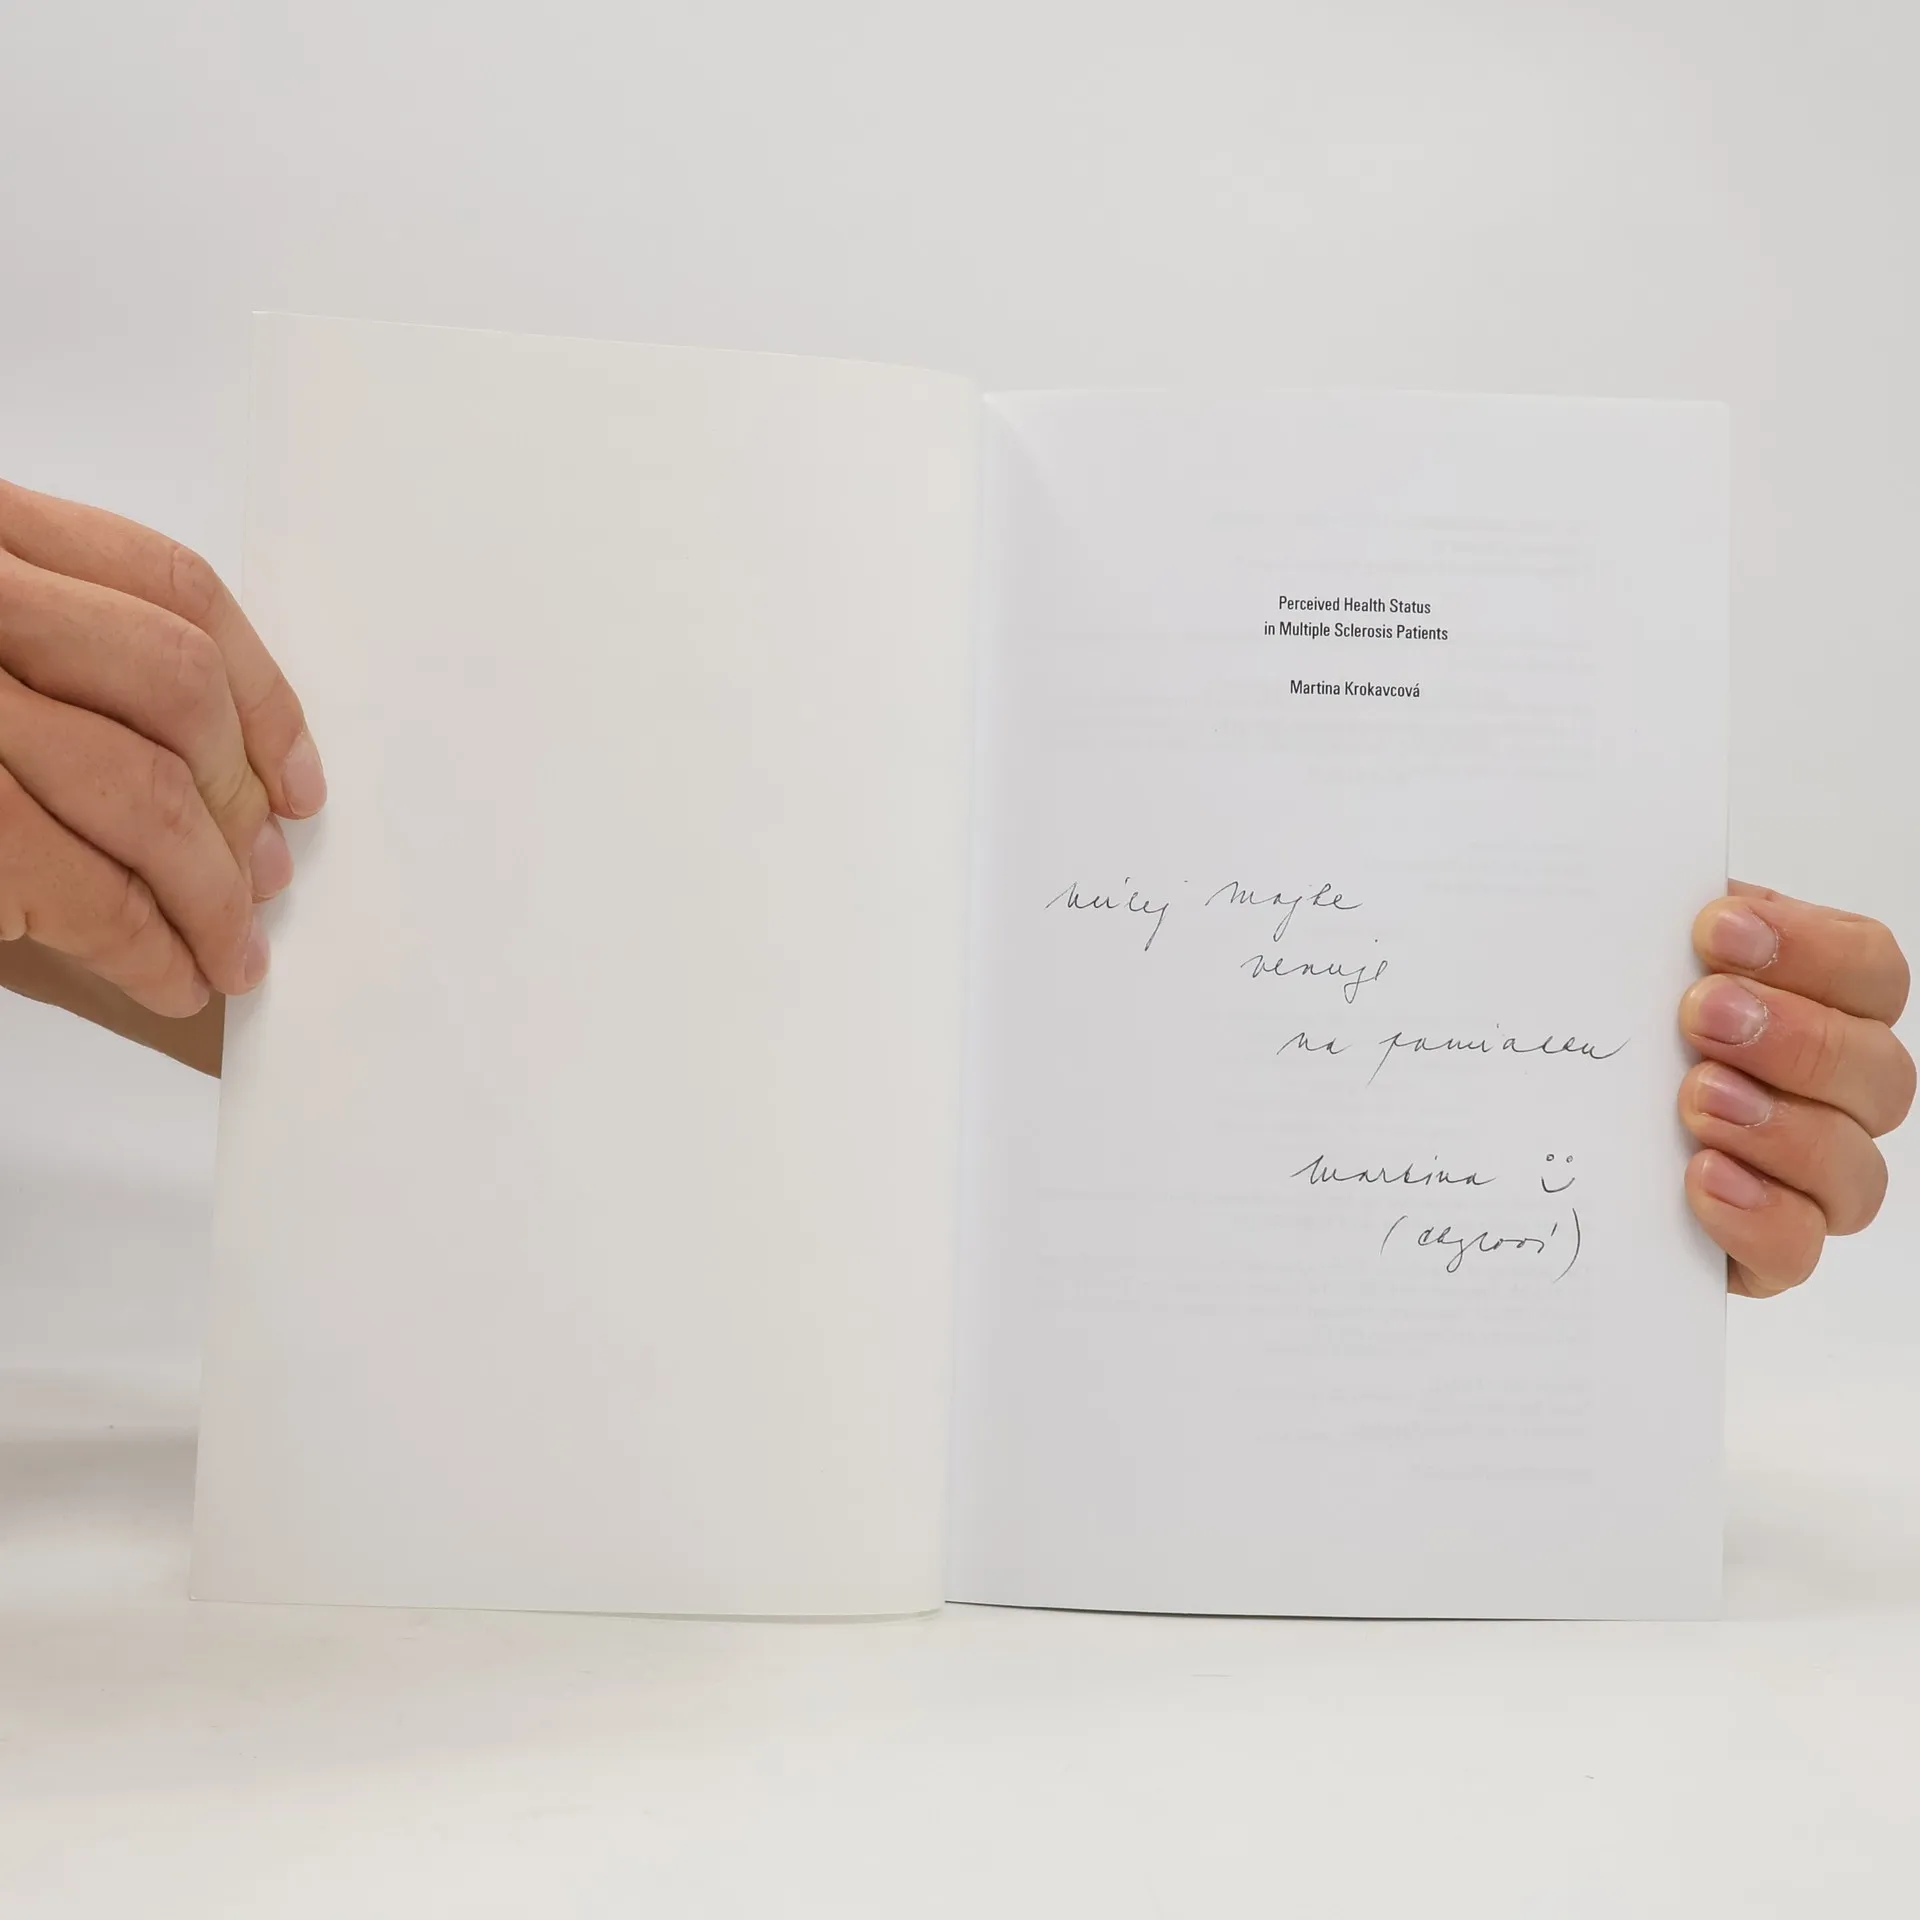 Perceived Health Status
in Multiple Sclerosis Patients
Martina Krokavcová
milej Majke
venuje
na pamiatku
Martina